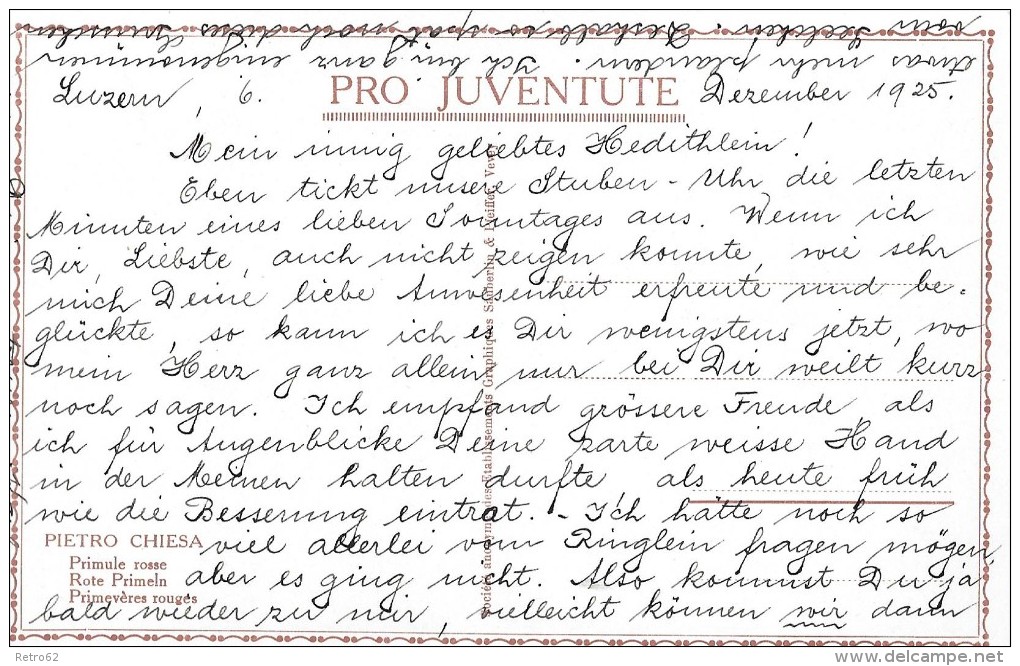 Luzern, 6. PRO JUVENTUTE Dezember 1925.
Mein innig geliebtes Hedithlein!
Eben tickt unsere Stuben-Uhr die letzten
Minuten eines lieben Sonntages aus. Wenn ich
Dir, Liebste, auch nicht zeigen konnte, wie sehr
mich Deine liebe Anwesenheit erfreute und be-
glückte, so kann ich es Dir wenigstens jetzt, wo
mein Herz ganz allein nur bei Dir weilt kurz
noch sagen. Ich empfand grössere Freude, als
ich für Augenblicke Deine zarte weisse Hand
in der Meinen halten durfte als heute früh
wie die Besserung eintrat. - Ich hätte noch so
viel allerlei vom Ringlein fragen mögen,
aber es ging nicht. Also kommst Du ja
bald wieder zu mir, vielleicht können wir dann
etwas mehr plaudern. Ich bin ganz eingenommen
vom Deshalb so spät noch dieses
PIETRO CHIESA
Primule rosse
Rote Primeln
Primevères rouges
Société anonyme des Etablissements Graphiques Säuberlin & Pfeiffer, Vevey
Retro62
delcampe.net